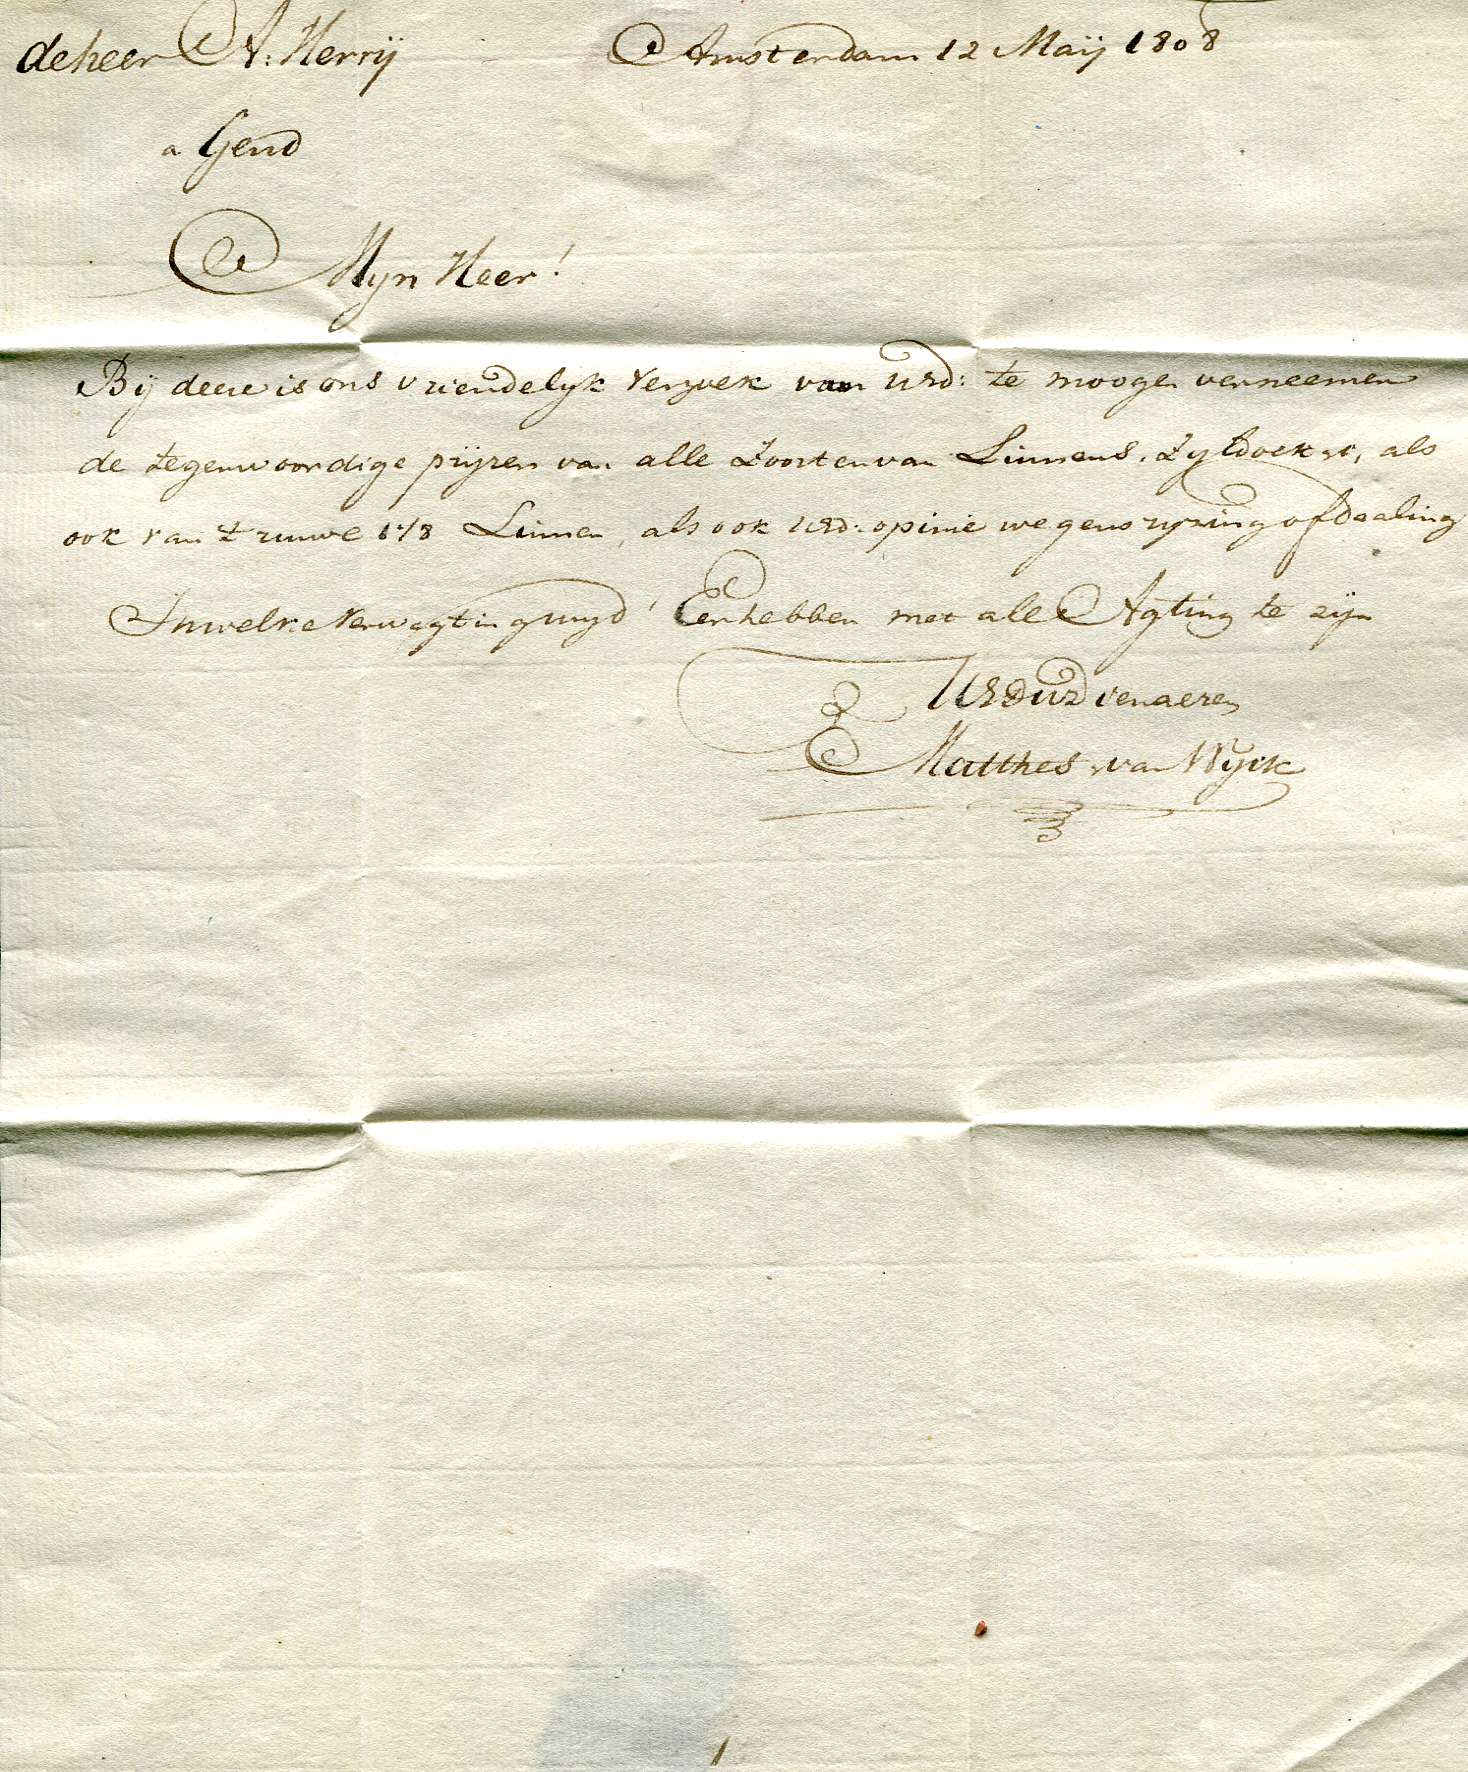 de heer A: Herrÿ Amsterdam 12 Maÿ 1808
a Gend
Myn Heer!
Bÿ deese is ons vriendelyk verzoek van UEd: te moogen verneemen
de tegenwoordige prÿzen van alle Zoorten van Linnens, Zyldoek, als
ook van 't ruwe Linnen, als ook UEd: opinie wegens ryzing of daaling
In welke Verwagting wy d' Eer hebben met alle Agting te zÿn
UEd DWDienaeren
Matthes van Wyck